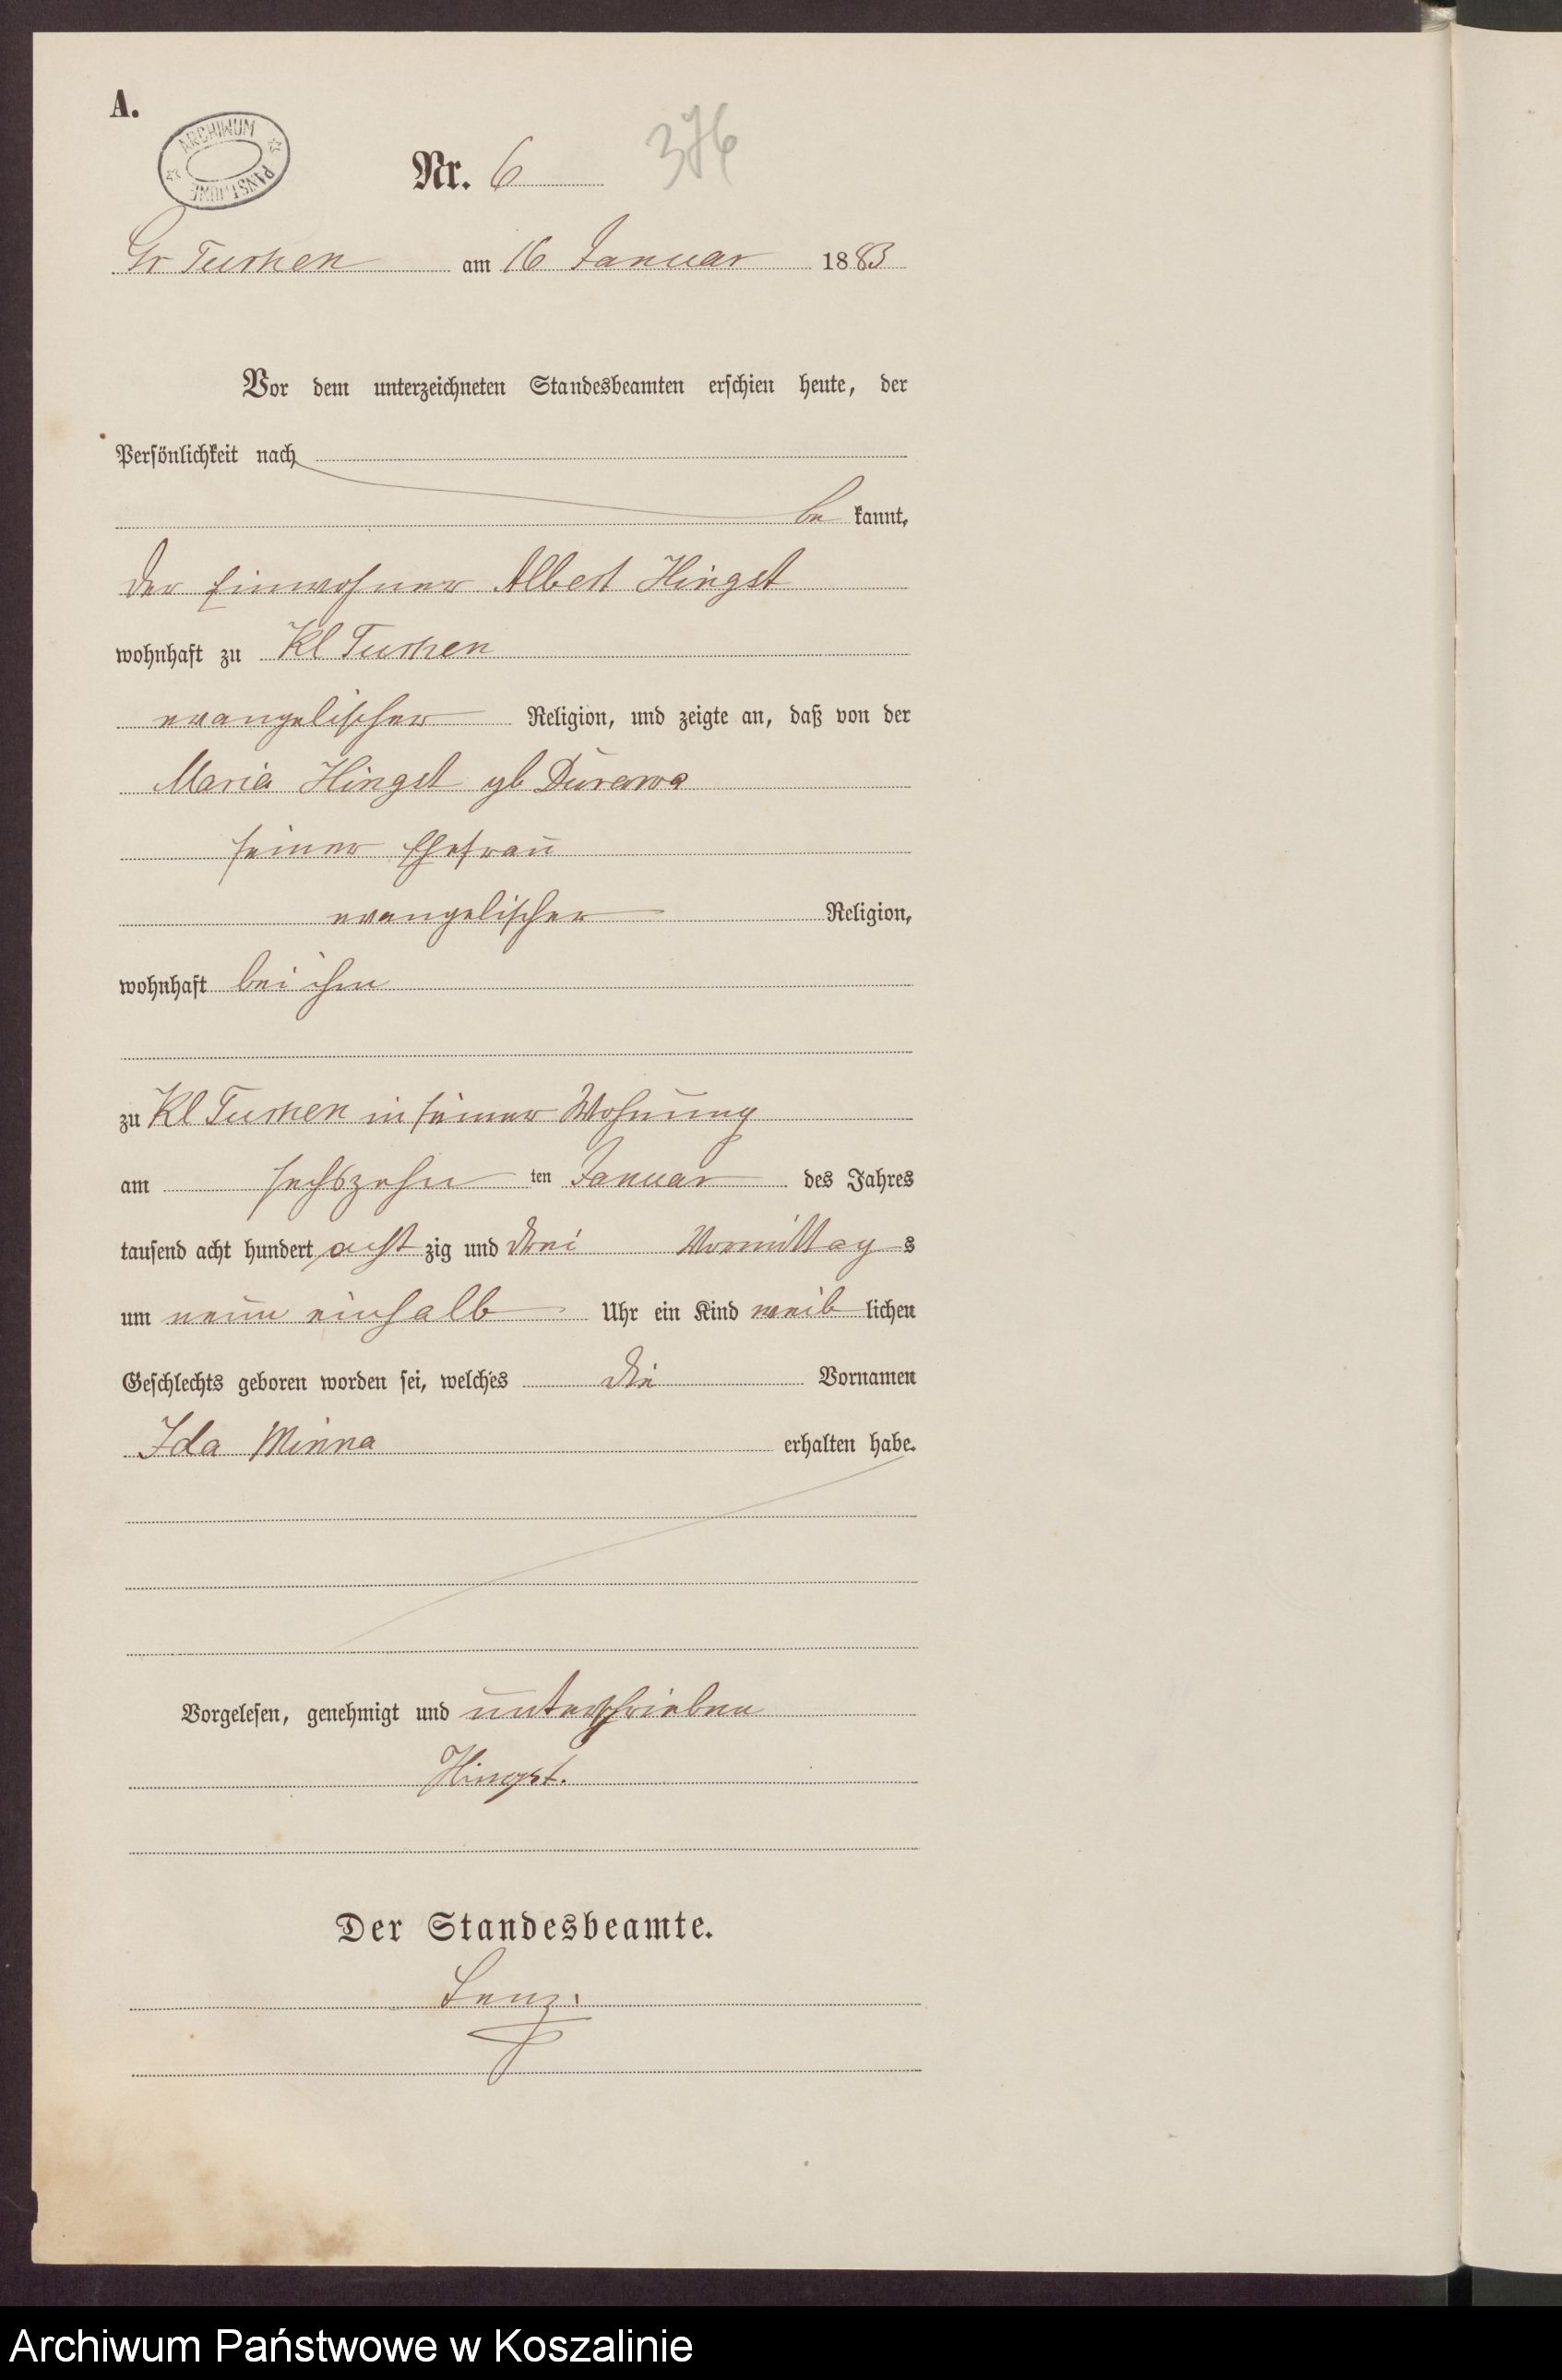 A.
ARCHIWUM PAŃSTWOWE
Nr. 6
376
Gr Tuchen am 16 Januar 1883
Vor dem unterzeichneten Standesbeamten erschien heute, der
Persönlichkeit nach
be kannt,
der Einwohner Albert Hingst
wohnhaft zu Kl Tuchen
evangelischer Religion, und zeigte an, daß von der
Maria Hingst gb Durawa
seiner Ehefrau
evangelischer Religion,
wohnhaft bei ihm
zu Kl Tuchen in seiner Wohnung
am sechszehn ten Januar des Jahres
tausend acht hundert acht zig und drei Vormittag s
um neun einhalb Uhr ein Kind weib lichen
Geschlechts geboren worden sei, welches die Vornamen
Ida Minna erhalten habe.
Vorgelesen, genehmigt und unterschrieben
Hingst.
Der Standesbeamte.
Lenz.
Archiwum Państwowe w Koszalinie